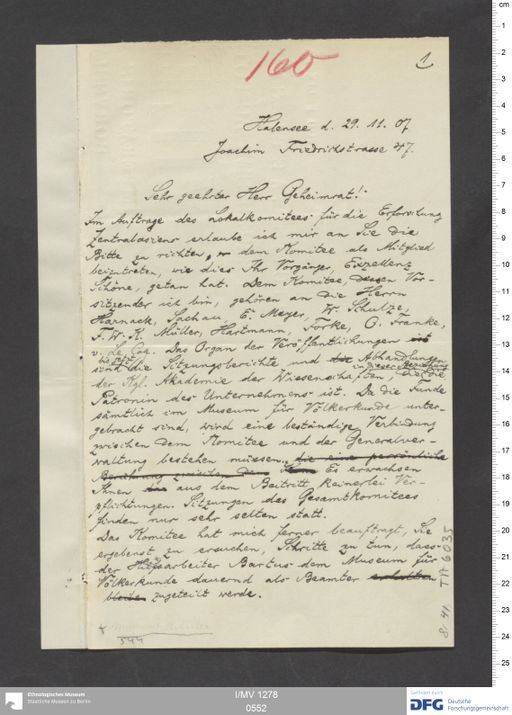 160
1
Halensee d. 29. 11. 07
Joachim Friedrichstrasse 47.
Sehr geehrter Herr Geheimrat!
Im Auftrage des Lokalkomitees für die Erforschung
Zentralasiens erlaube ich mir an Sie die
Bitte zu richten, dem Komitee als Mitglied
beizutreten, wie dies Ihr Vorgänger, Exzellenz
Schöne, getan hat. Dem Komitee, dessen Vor-
sitzender ich bin, gehören an die Herrn
Harnack, Sachau, E. Meyer, W. Schulze,
F. W. K. Müller, Hartmann, Forke, O. Franke,
v. Le Coq. Das Organ der Veröffentlichungen
sind die Sitzungsberichte und die Abhandlungen
der Kgl. Akademie der Wissenschaften, die
in dieser Beziehung
Patronin des Unternehmens ist. Da die Funde
sämtlich im Museum für Völkerkunde unter-
gebracht sind, wird eine beständige Verbindung
zwischen dem Komitee und der Generalver-
waltung bestehen müssen. die eine persönliche
Berührung zwischen dem Es erwachsen
Ihnen aus dem Beitritt keinerlei Ver-
pflichtungen. Sitzungen des Gesamtkomitees
finden nur sehr selten statt.
Das Komitee hat mich ferner beauftragt, Sie
ergebenst zu ersuchen, Schritte zu tun, dass
der Hilfsarbeiter Bartus dem Museum für
Völkerkunde dauernd als Beamter erhalten
bleibe zugeteilt werde.
544
8. 41. TA 6035
cm
1
2
3
4
5
6
7
8
9
10
11
12
13
14
15
16
17
18
19
20
21
22
23
24
25
Ethnologisches Museum
Staatliche Museen zu Berlin
I/MV 1278
0552
Gefördert durch
DFG Deutsche
Forschungsgemeinschaft